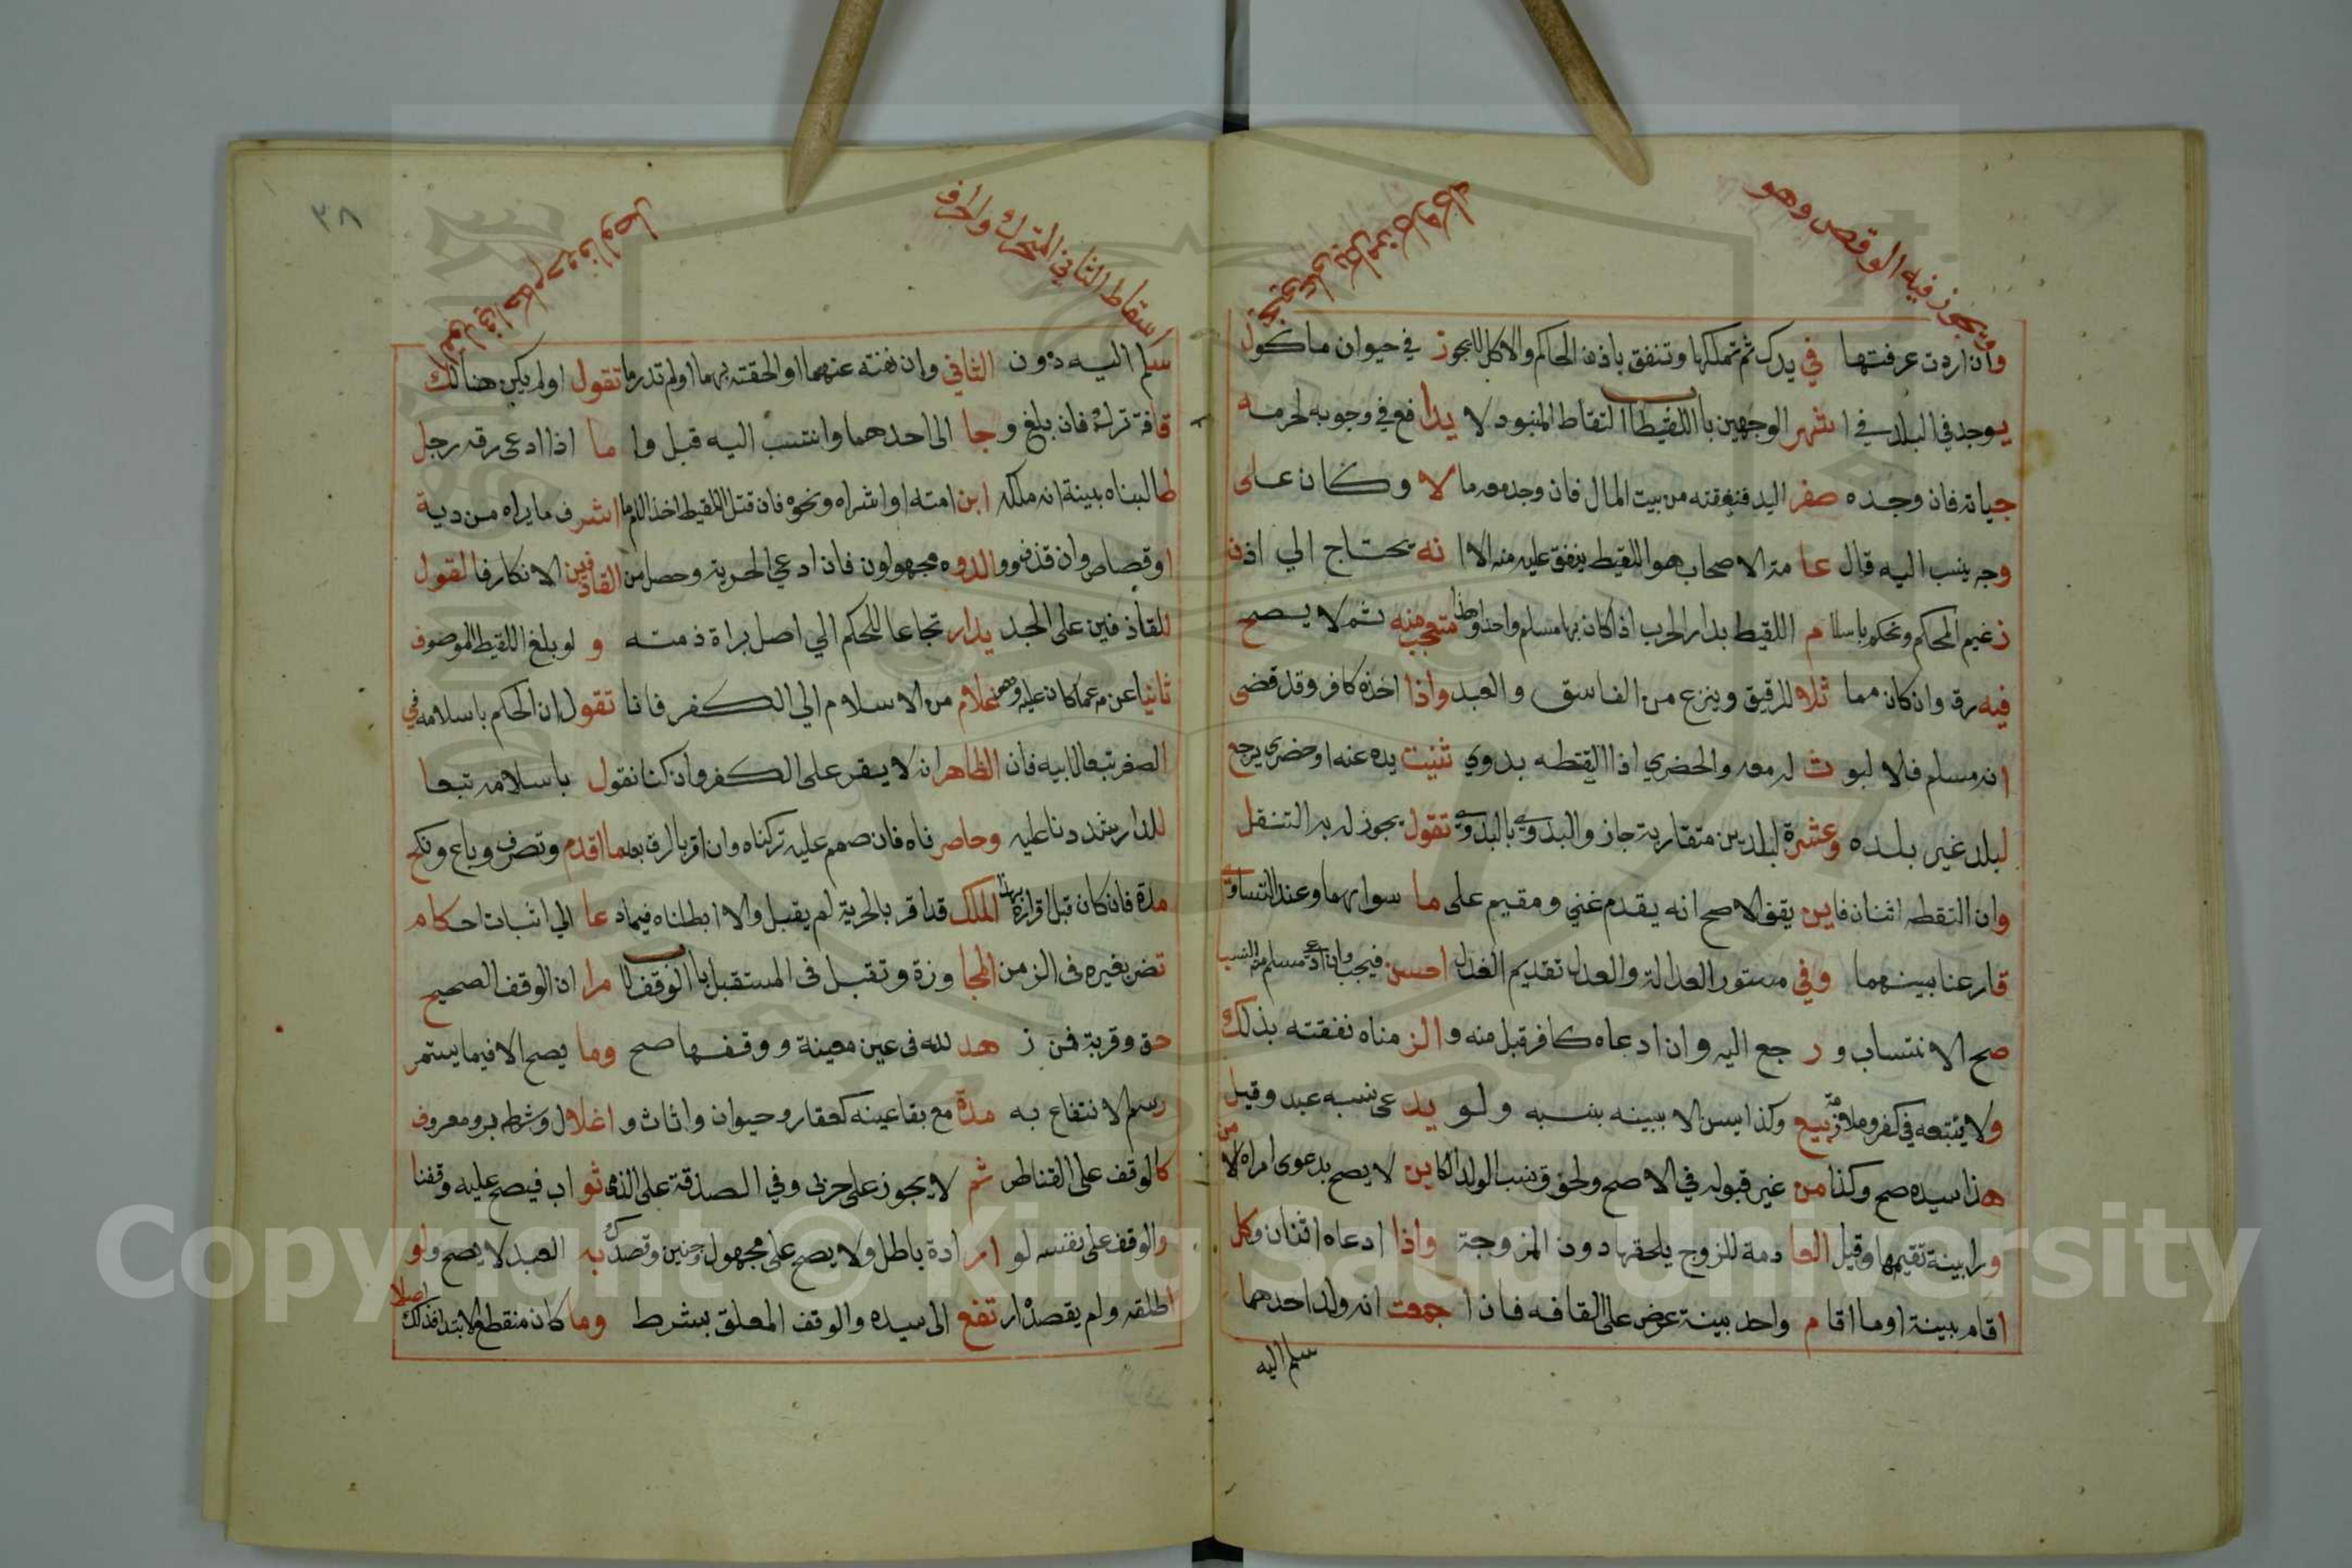 يجوز فيه الوقص وهو
وان اردت عرفتها في يدك ثم تملكها وتنفق باذن الحاكم والاكل لا يجوز في حيوان ماكول
يوجد في البلد في اشهر الوجهين باب اللقيط التقاط المنبوذ لا يدافع في وجوبه لحرمة
حياته فان وجده صفر اليد فنفقته من بيت المال فان وجد معه مالا وكان على
وجه ينسب اليه قال عامة الاصحاب هو اللقيط ينفق عليه منه الا انه يحتاج الي اذن
زعيم الحكم ونحكم باسلام اللقيط بدار الحرب اذا كان بها مسلم واحد وهذا متجه منه ثم لا يصح
فيه رق وان كان مما ثلا للرقيق وينزع من الفاسق والعبد واذا اخذه كافر وقد قضي
انه مسلم فلا لبوث له معه والحضري اذا القطه بدوي ثنيت يده عنه او حضري يرجع
لبلد غير بلده وعشرة البلدين متقاربة جاز والبدوي بالبدوي تقول يجوز له به التنقل
وان التقطه اثنان فاين يقف الاصح انه يقدم غني ومقيم على ما سواهما وعند التساوي
قارعنا بينهما وفي مستور العدالة والعدل تقديم العدل احسن فيجب وان ادعى مسلم النسب
صح الانتساب ورجع اليه وان ادعاه كافر قبل منه والزمناه نفقته بذلك
ولا يتبعه في كفر وكذا ليس الا ببينه بنسبه ولو يدعى نسبه عبد وقيل
هذا سيده صح وكذا من غير قبوله في الاصح ولحوق نسب الولد الكاين لا يصح بدعوى امراة لا
ورا بينة تقيمها وقيل العادمة للزوج يلحقها دون المزوجة واذا ادعاه اثنان وكل
اقام بينة او ما اقام واحد بينة عرض على القافه فان اجمعت انه ولد احدهما
سلم اليه
٣٨
اسقاط الثاني المتحرك واحرف
سلم اليه دون الثاني وان نفته عنهما او الحقته بهما او لم تدر ما تقول او لم يكن هنالك
قافة ترك فان بلغ وجا الى احدهما وانتسب اليه قبل واما اذا ادعى رقه رجل
طالبناه ببينة انه ملكه ابن امته او اشتراه ونحوه فان قتل اللقيط اخذ الامام اشرف ما يراه من دية
او قصاص وان قذف ووالدوه مجهولون فان ادعى الحرية وحصل من القاذفين الانكار فالقول
للقاذفين على الجد يدار تجاعا للحكم الي اصل براة ذمته ولو بلغ اللقيط الموصوف
ثانيا عن من الاسلام الي الكفر فانا تقول ان الحكم باسلامه في
الصغر تبعا لابيه فان الظاهر ان لا يقر على الكفر وان كنا نقول باسلامه تبعا
للدار شددنا عليه وحاصرناه فان صمم عليه تركناه وان اقر بالرق بعد ما اقدم وتصرف وباع ونكح
مدة فان كان قبل اقراره بهذا الملك قد اقر بالحرية لم يقبل والا ابطلناه فيما دعا الي اثبات احكام
تضر بغيره في الزمن المجاوزة وتقبل في المستقبل باب الوقف لا مرا ان الوقف الصحيح
حق وقربة فمن زهد لله في عين معينة ووقفها صح وما يصح الا فيما يستمر
رسم الانتفاع به مدة مع بقا عينه كعقار وحيوان واثاث واغلال وشرطه بر ومعروف
كالوقف على القناطر ثم لا يجوز على حربي وفي الصدقة على الذمي ثواب فيصح عليه وقفنا
والوقف على نفسه لو ارادة باطل ولا يصح على مجهول وجنين وتصدق به العبد لا يصح ولو
اطلقه ولم يقصد ارتفع الى سيده والوقف المعلق بشرط وما كان منقطع الابتدا فذلك اصلا